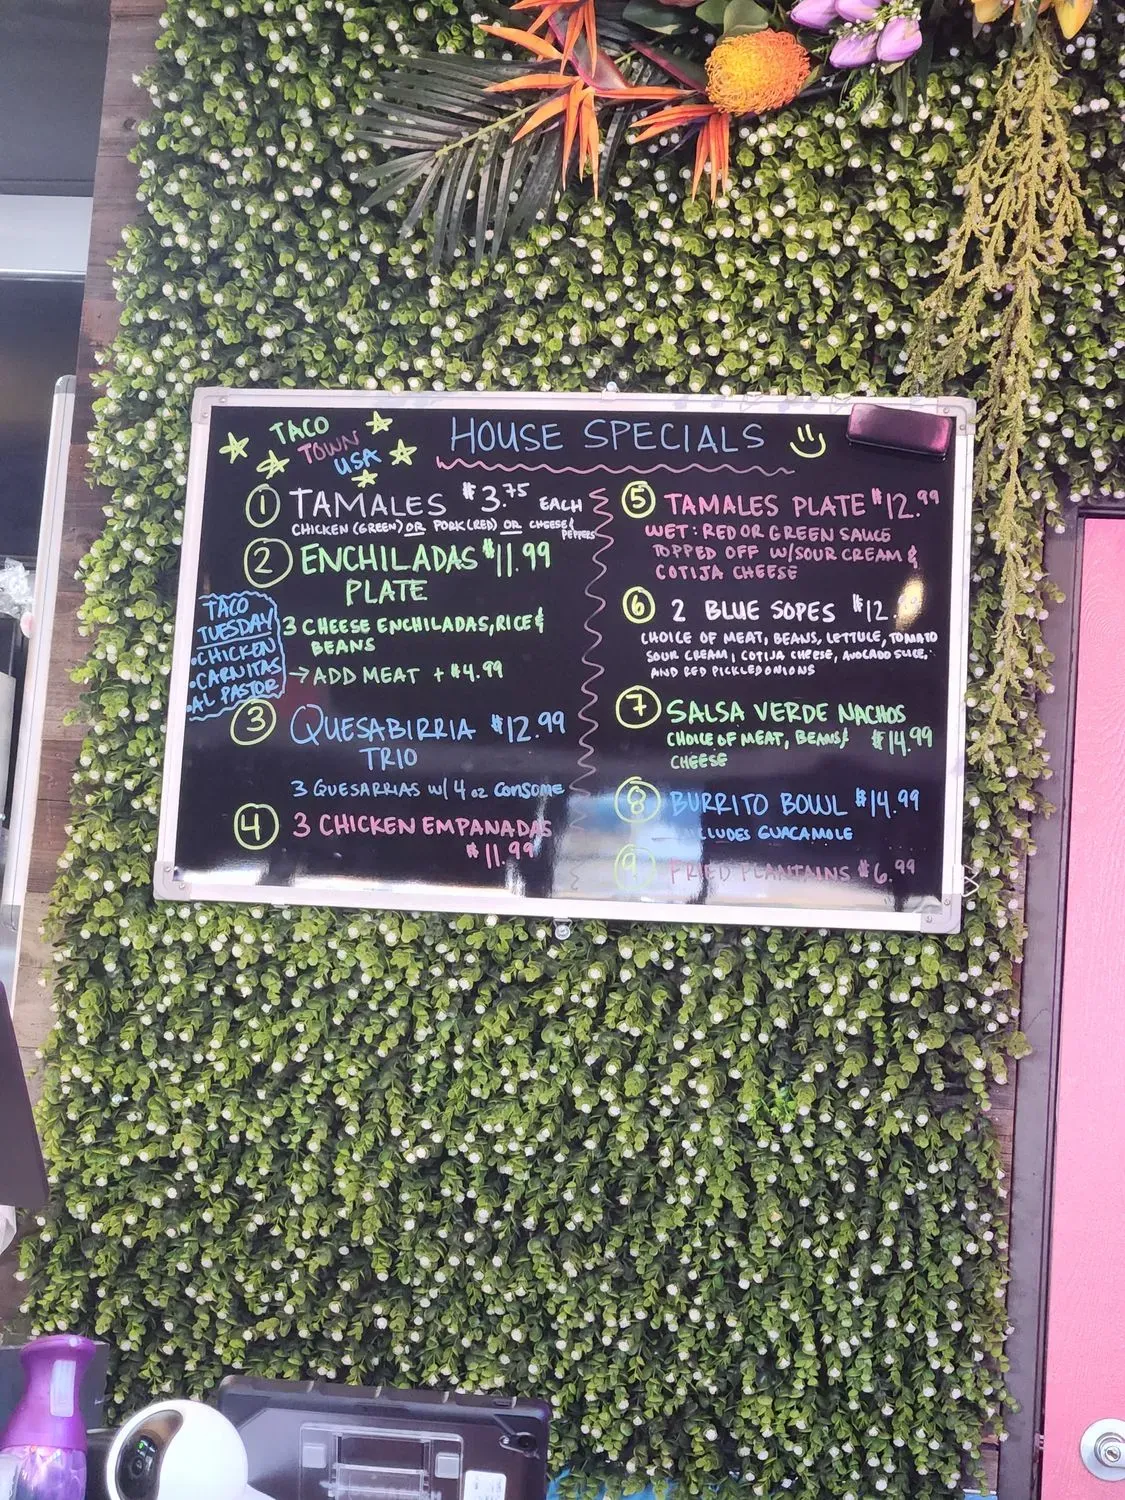 TACO
TOWN
USA
HOUSE SPECIALS
1 TAMALES $3.75 EACH
CHICKEN (GREEN) OR PORK (RED) OR CHEESE &
PEPPERS
2 ENCHILADAS $11.99
PLATE
3 CHEESE ENCHILADAS, RICE &
BEANS
→ ADD MEAT + $4.99
TACO
TUESDAY
• CHICKEN
• CARNITAS
• AL PASTOR
3 QUESABIRRIA $12.99
TRIO
3 QUESARRIAS w/ 4 oz CONSOME
4 3 CHICKEN EMPANADAS
$11.99
5 TAMALES PLATE $12.99
WET: RED OR GREEN SAUCE
TOPPED OFF W/SOUR CREAM &
COTIJA CHEESE
6 2 BLUE SOPES $12.
CHOICE OF MEAT, BEANS, LETTUCE, TOMATO
SOUR CREAM, COTIJA CHEESE, AVOCADO SLICE,
AND RED PICKLED ONIONS
7 SALSA VERDE NACHOS
CHOICE OF MEAT, BEANS & $14.99
CHEESE
8 BURRITO BOWL $14.99
INCLUDES GUACAMOLE
9 FRIED PLANTAINS $6.99